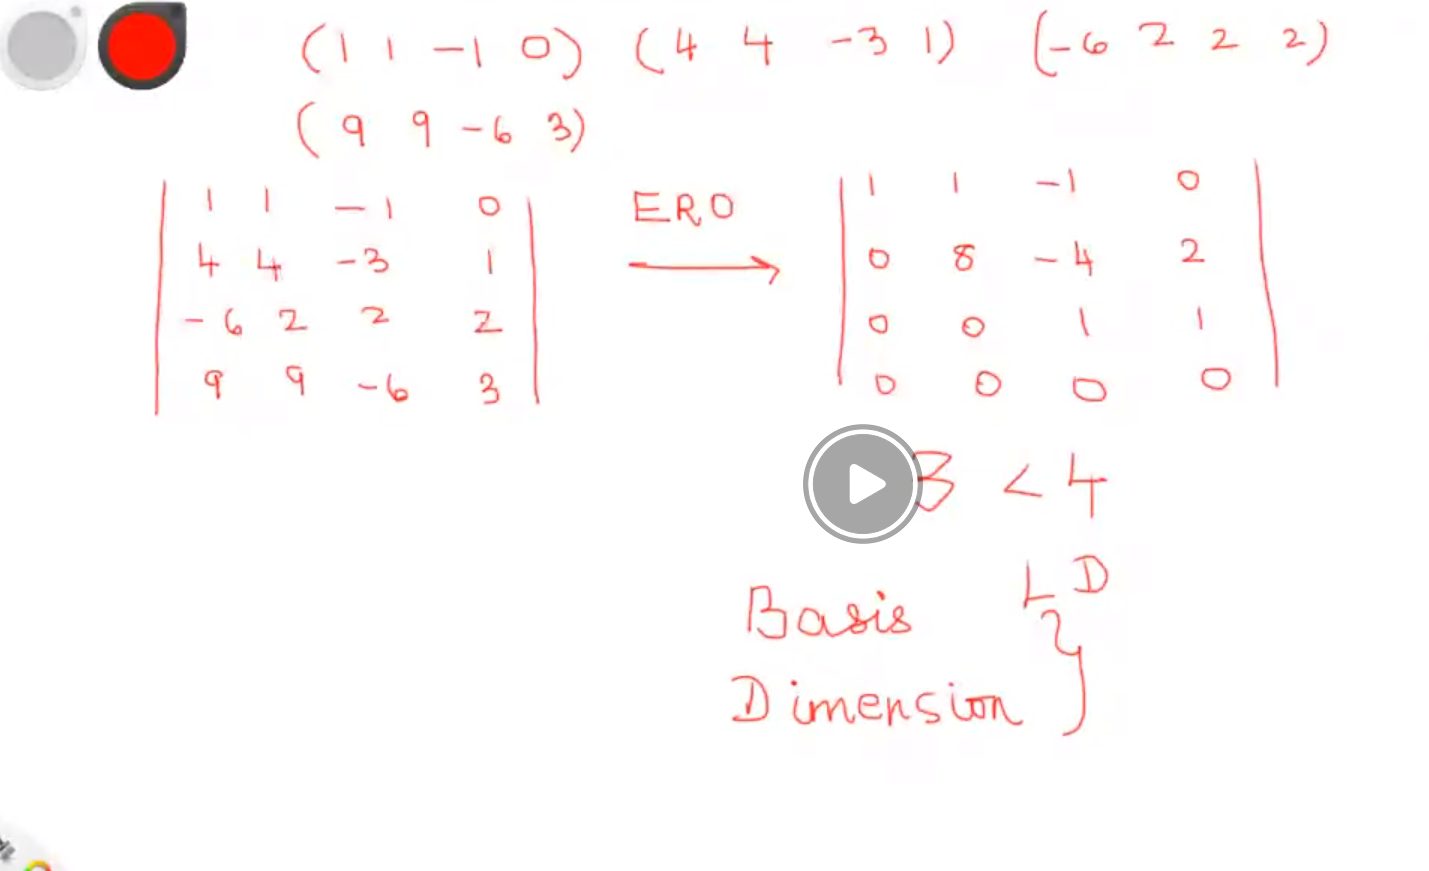 (1 1 -1 0) (4 4 -3 1) (-6 2 2 2)
(9 9 -6 3)
| 1 1 -1 0 |
| 4 4 -3 1 |
| -6 2 2 2 |
| 9 9 -6 3 |
ERO
→
| 1 1 -1 0 |
| 0 8 -4 2 |
| 0 0 1 1 |
| 0 0 0 0 |
3 < 4
LD
Basis
Dimension }